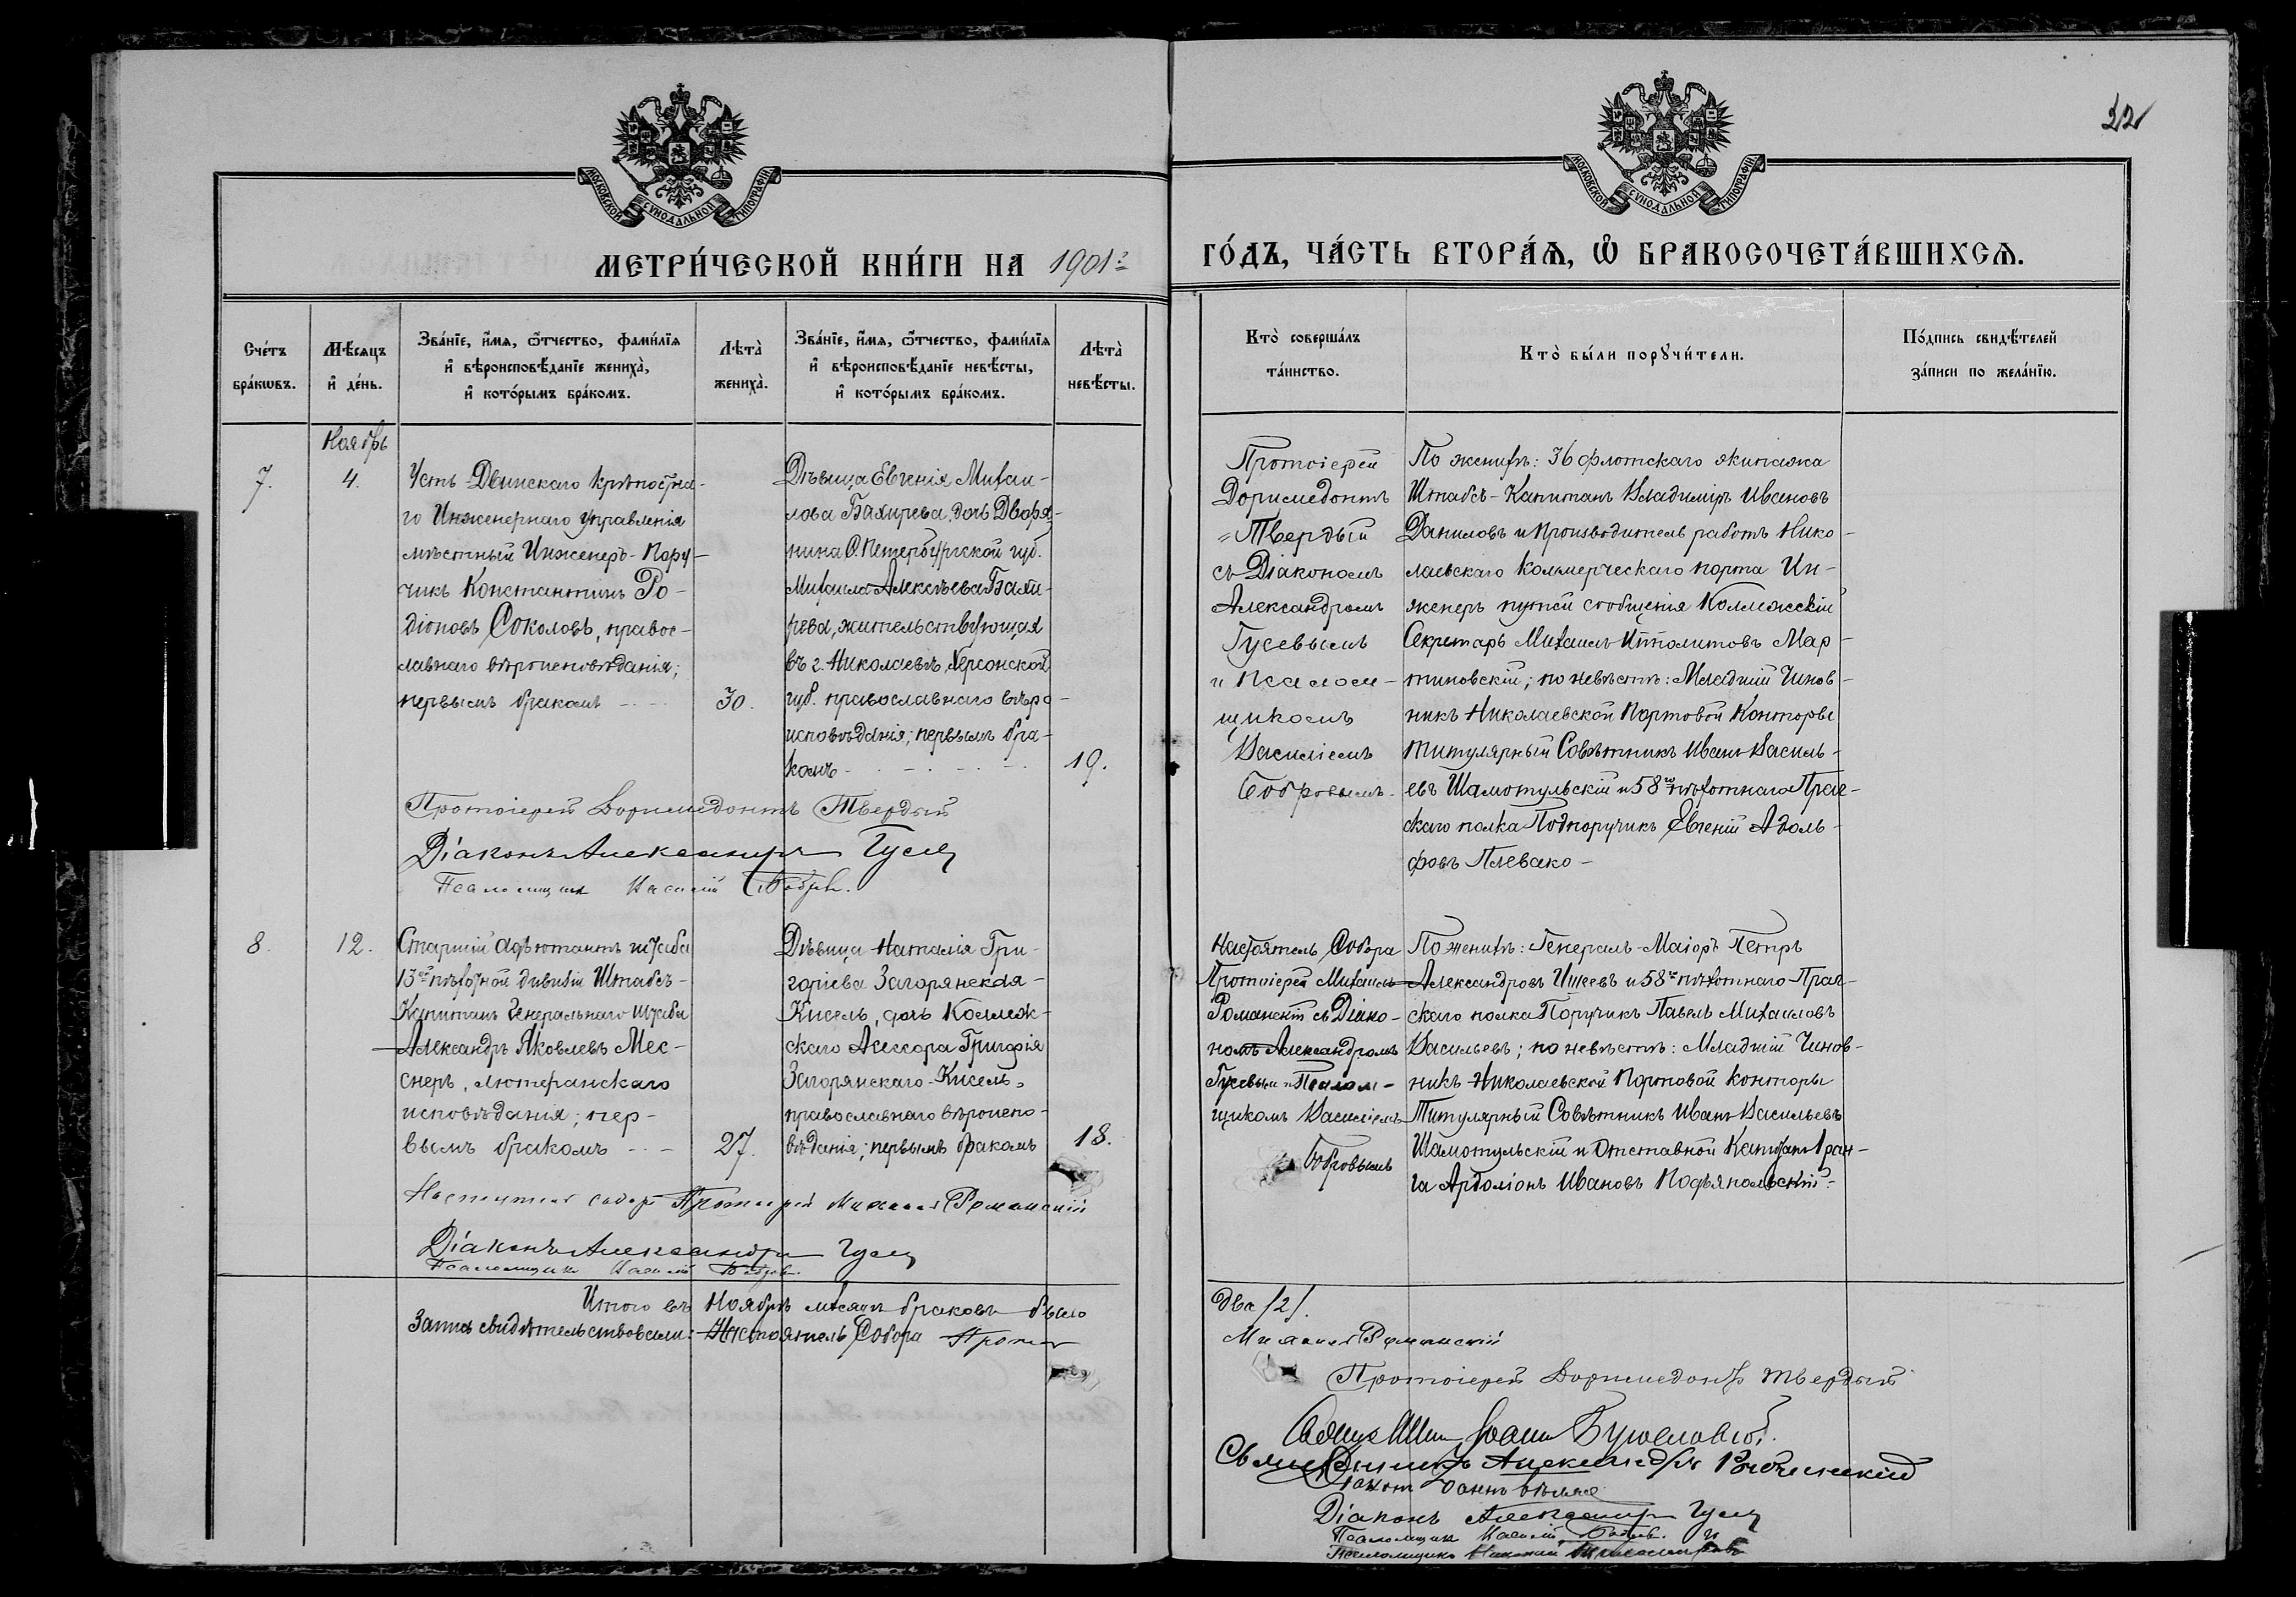 22
МОСКОВСКОЙ СУНОДАЛЬНОЙ ТИПОГРАФІИ
МОСКОВСКОЙ СУНОДАЛЬНОЙ ТИПОГРАФІИ
МЕТРИ́ЧЕСКОЙ КНИ́ГИ НА 1901 г
ГО́ДЪ, ЧА́СТЬ ВТОРА́Ѧ, Ѽ БРАКОСОЧЕТА́ВШИХСѦ.
Сче́тъ
бра́кѡвъ.
Мѣ́сѧцъ
и҆ де́нь.
Зва́нїе, и҆́мѧ, ѻ҆́тчество, фами́лїѧ
и҆ вѣроисповѣ́данїе жениха̀,
и҆ кото́рымъ бра́комъ.
Лѣта̀
жениха̀.
Зва́нїе, и҆́мѧ, ѻ҆́тчество, фами́лїѧ
и҆ вѣроисповѣ́данїе невѣ́сты,
и҆ кото́рымъ бра́комъ.
Лѣта̀
невѣ́сты.
Кто̀ соверша́лъ
та́инство.
Кто̀ бы́ли порꙋчи́тели.
По́дпись свидѣ́телей
за́писи по жела́нїю.
Ноябрь
7.
4.
Усть Двинскаго Крѣпостна-
го Инженернаго Управленія
мѣстный Инженеръ-Пору-
чикъ Константинъ Ро-
діоновъ Соколовъ, правос-
лавнаго вѣроисповѣданія;
первымъ бракомъ
30.
Дѣвица Евгенія Михаи-
лова Бахирева, дочь Дворя-
нина С. Петербургской губ.
Михаила Алексѣева Бахи-
рева, жительствующая
въ г. Николаевѣ, Херсонской
губ. православнаго вѣро-
исповѣданія; первымъ бра-
комъ
19.
Протоіерей
Доримедонтъ
Твердый
съ Діакономъ
Александромъ
Гусевымъ
и Псалом-
щикомъ
Василіемъ
Бобровымъ.
По женихѣ: 36 флотскаго экипажа
Штабсъ-Капитанъ Владиміръ Ивановъ
Даниловъ и Производитель работъ Нико-
лаевскаго Коммерческаго порта Ин-
женеръ путей сообщенія Коллежскій
Секретарь Михаилъ Ипполитовъ Мар-
тиновскій; по невѣстѣ: Младшій Чинов-
никъ Николаевской Портовой Конторы
Титулярный Совѣтникъ Иванъ Василь-
евъ Шамотульскій и 58го пѣхотнаго Праг-
скаго полка Подпоручикъ Евгеній Адоль-
фовъ Плевако
Протоіерей Доримедонтъ Твердый
Діаконъ Александръ Гусев
Псаломщикъ Василій Бобров.
8.
12.
Старшій адъютантъ штаба
13ой пѣхотной дивизіи Штабсъ-
Капитанъ Генеральнаго Штаба
Александръ Яковлевъ Мес-
снеръ, лютеранскаго
исповѣданія; пер-
вымъ бракомъ
27.
Дѣвица Наталія Гри-
горіева Загорянская-
Кисель, дочь Коллеж-
скаго Асессора Григорія
Загорянскаго-Кисель,
православнаго вѣроиспо-
вѣданія; первымъ бракомъ
18.
Настоятель Собора
Протоіерей Михаилъ
Романскій съ Діако-
номъ Александромъ
Гусевым и Псалом-
щикомъ Василіемъ
Бобровымъ
По женихѣ: Генералъ-Маіоръ Петръ
Александровъ Ишеевъ и 58го пѣхотнаго Праг-
скаго полка Поручикъ Павелъ Михаиловъ
Васильевъ; по невѣстѣ: Младшій Чинов-
никъ Николаевской Портовой конторы
Титулярный Совѣтникъ Иванъ Васильевъ
Шамотульскій и Отставной Капитанъ 1 ран-
га Ардаліонъ Ивановъ Подъяпольскій.
Настоятель собора Протоіерей Михаилъ Романскій
Діаконъ Александръ Гусев
Псаломщикъ Василій Бобров.
Итого въ Ноябрѣ мѣсяцѣ браковъ было
два /2/.
Запись свидѣтельствовали: Настоятель Собора Протоі
Михаилъ Романскій
Протоіерей Доримедонтъ Твердый
Іоаннъ
Священникъ Александръ
Діаконъ Александръ Гусев
Псаломщикъ Василій Бобров. и
Псаломщикъ